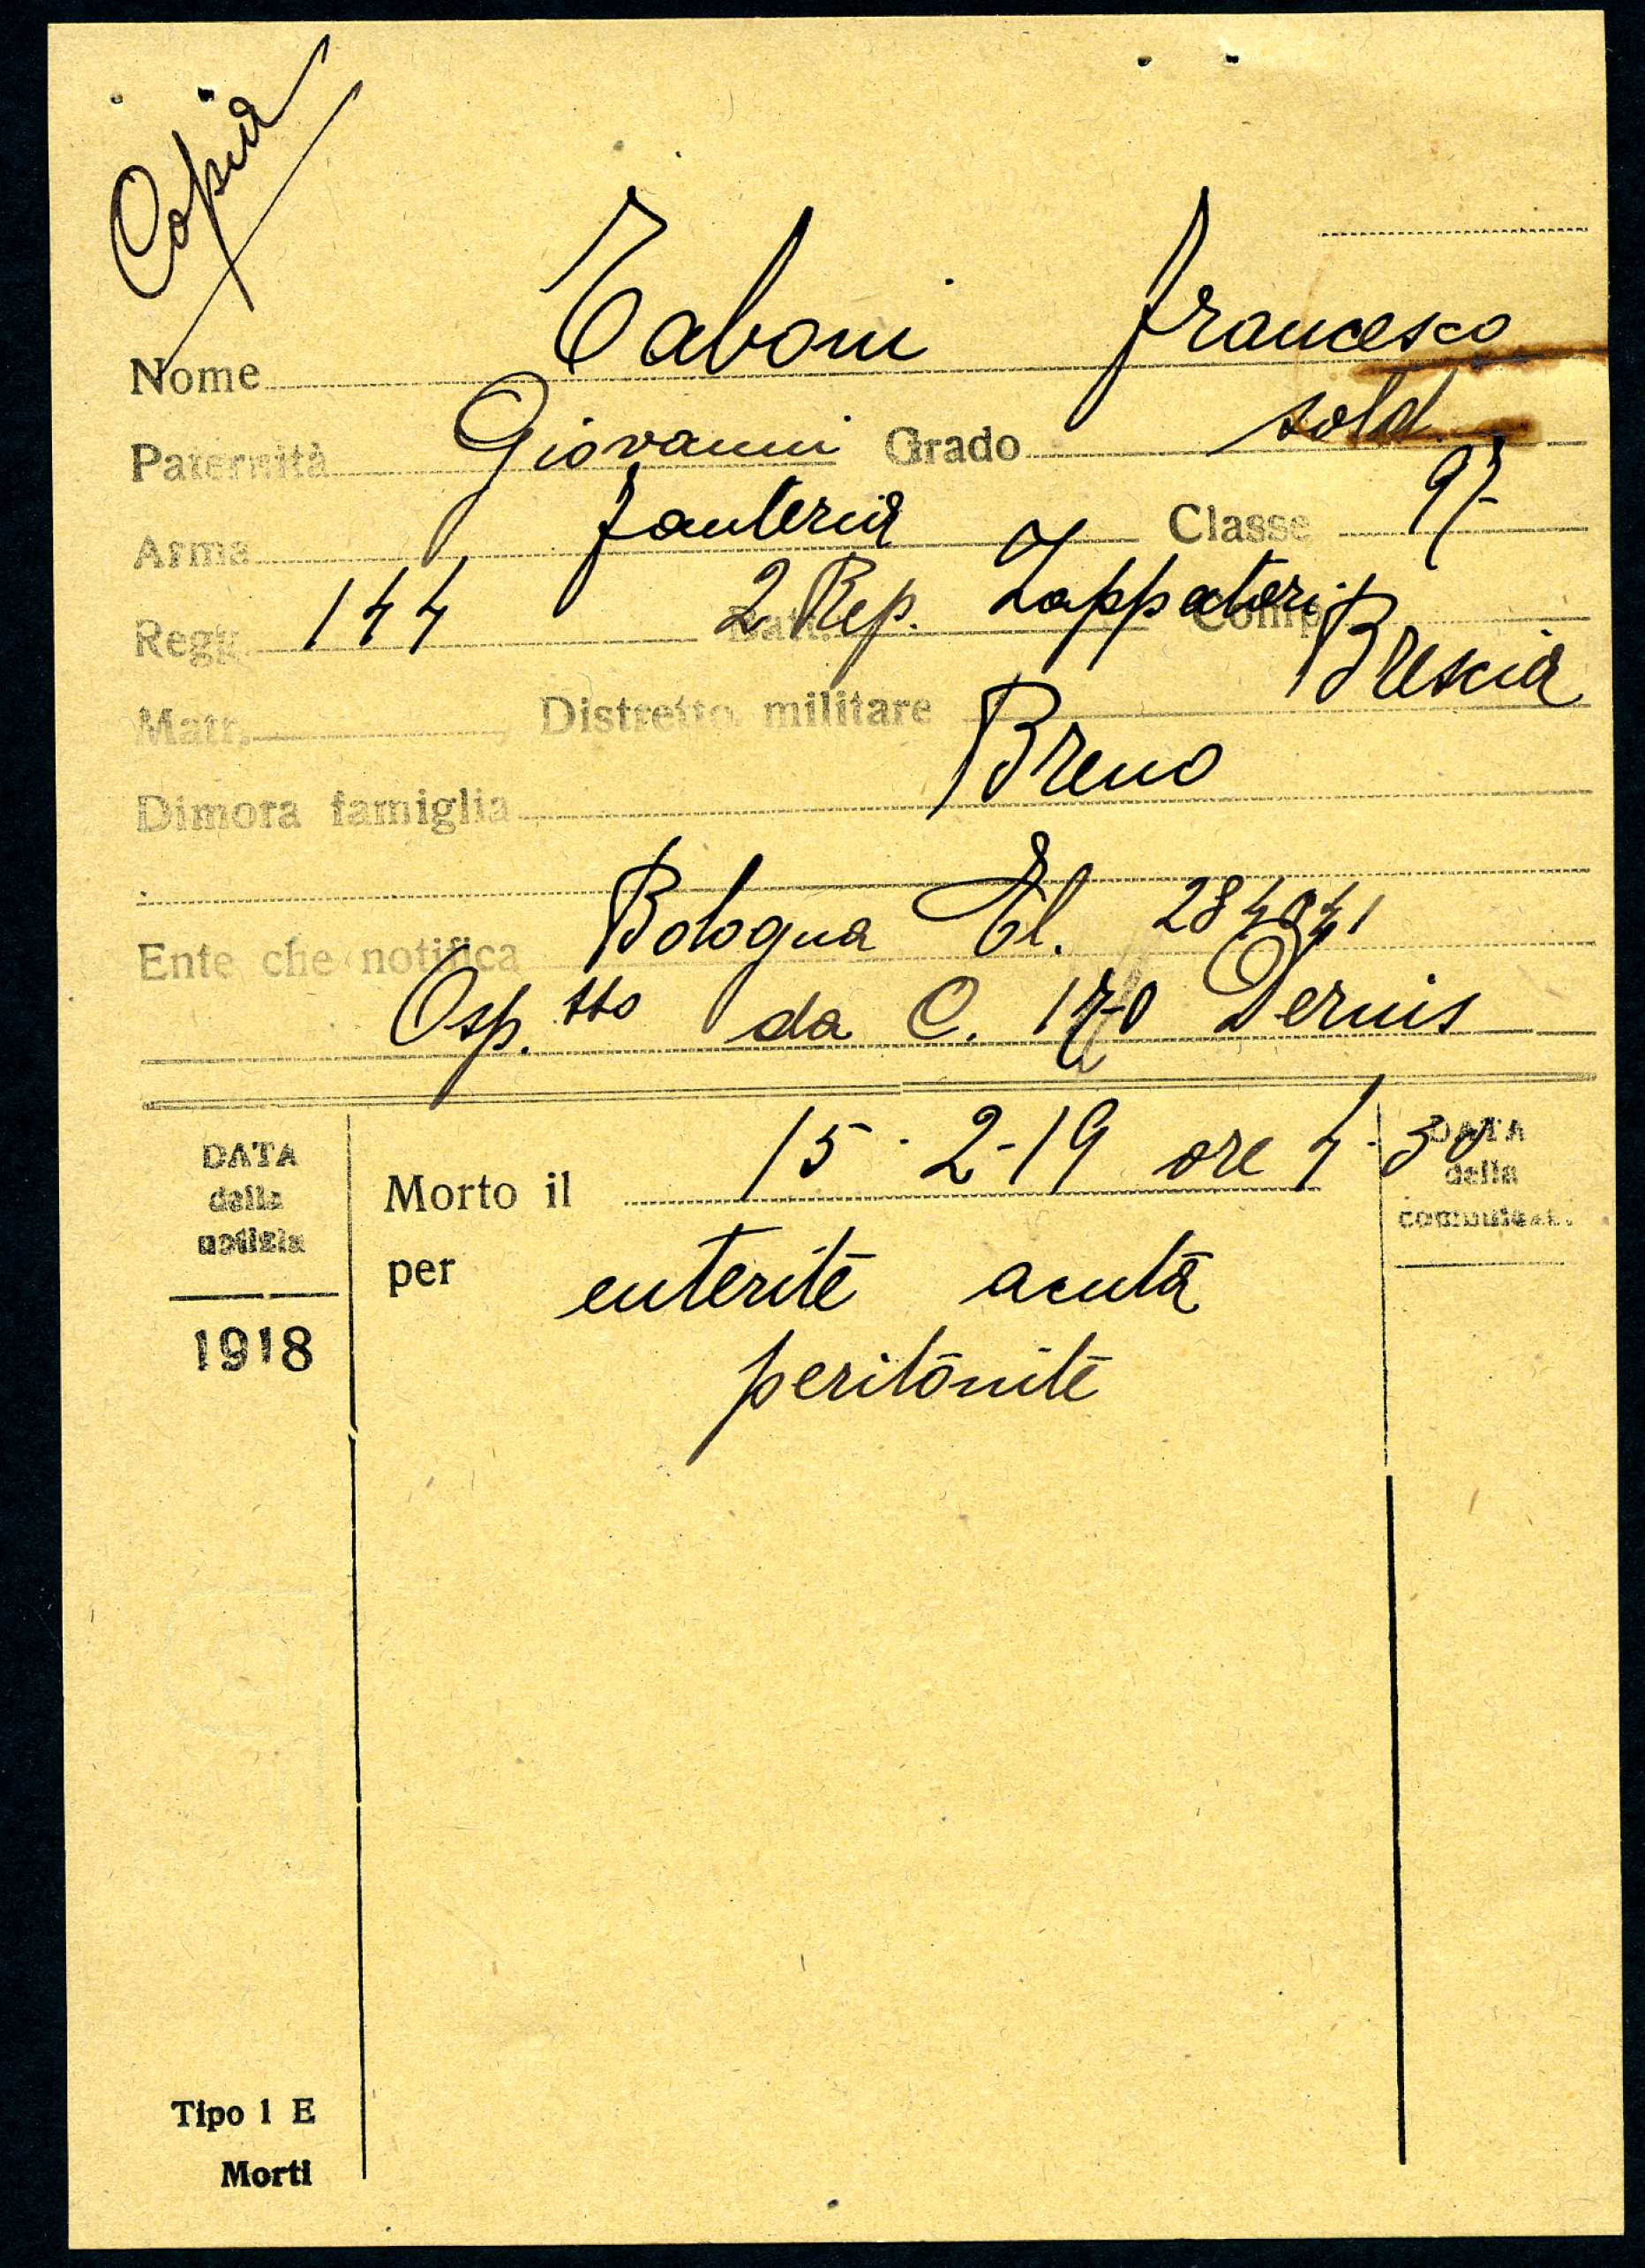 Copia
Nome Taboni Francesco
Paternità Giovanni Grado sold.
Arma fanteria Classe 97
Regg. 144 Batt. 2 Rep. Zappatori Comp.
Matr. Distretto militare Brescia
Dimora famiglia Breno
Ente che notifica Bologna El.
Osp. tto da C.
DATA della notizia
Morto il 15-2-19 ore 4-30
DATA della comunicaz.
per enterite acuta
peritonite
1918
Tipo 1 E
Morti